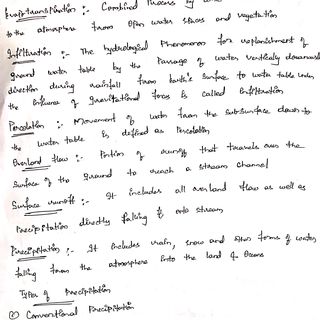 Evapotranspiration :- Combined Process by
to the atmosphere from Open water surfaces and vegetation
Infiltration :- The hydrological Phenomenon for replenishment of
ground water table by the Passage of water vertically downward
direction during rainfall from Earth's Surface to water table under
the influence of gravitational force is called Infiltration
Percolation :- Movement of water from the Subsurface down to
the water table is defined as Percolation
Overland flow :- Portion of runoff that travels over the
Surface of the ground to reach a stream channel
Surface runoff :- It includes all overland flow as well as
Precipitation directly falling onto stream
Precipitation :- It includes rain, snow and other forms of water,
falling from the atmosphere into the land & Oceans
Types of Precipitation
Conventional Precipitation